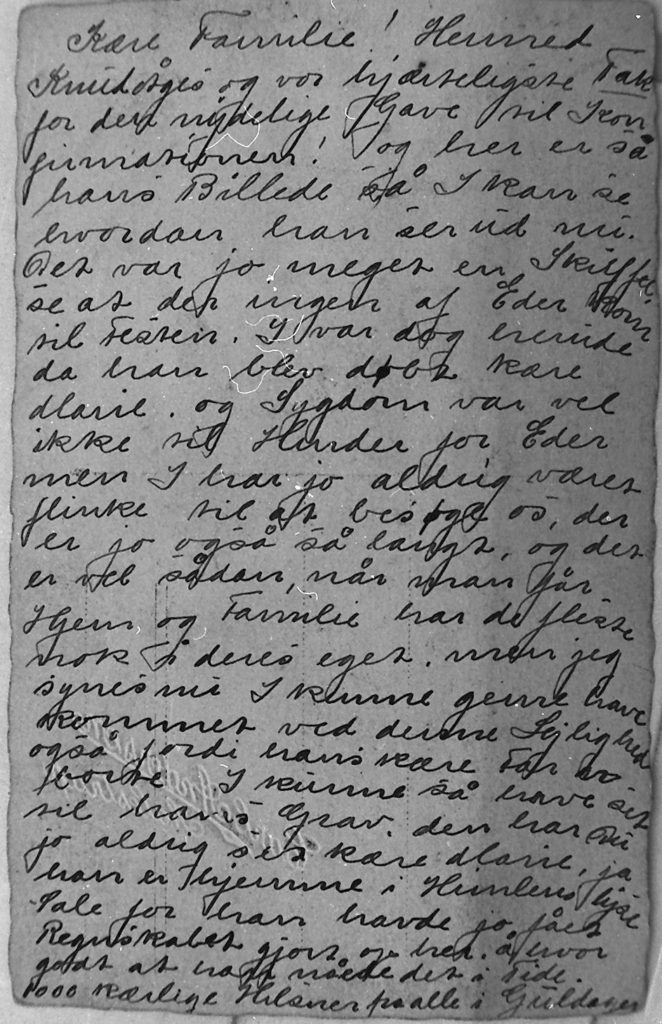 Kære Familie! Hermed
Knud Åges og vor hjærteligste Tak
for den nydelige Gave til Kon
firmationen! og her er så
hans Billede så I kan se
hvordan han ser ud nu.
Det var jo meget en Skuffel
se at der ingen af Eder kom
til Festen. I var dog herude
da han blev døbt kære
Marie. og Sygdom var vel
ikke til Hinder for Eder
men I har jo aldrig været
flinke til at besøge os, der
er jo også så langt, og det
er vel sådan, når man får
Hjem og Familie har de fleste
nok i deres eget. men jeg
synes nu I kunne gerne have
kommet ved denne Lejlighed
også fordi hans kære Far er
borte I kunne så have set
til hans Grav. den har du
jo aldrig set kære Marie, ja
han er hjemme i Himlens lyse
Sale for han havde jo fået
Regnskabet gjort op her. å hvor
godt at han nåede det i Tide.
1000 kærlige Hilsner paa alle i Guldager